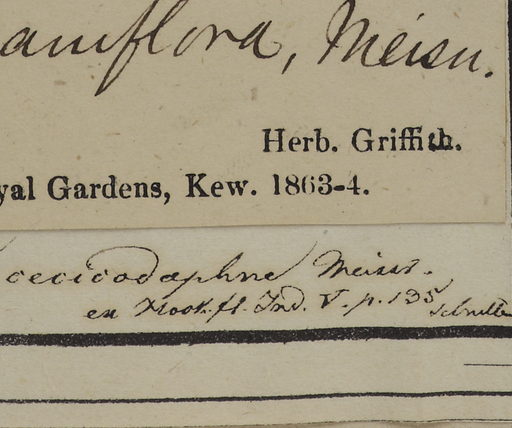 amflora, Meisn.
Herb. Griffith.
yal Gardens, Kew. 1863-4.
cecicodaphne Meissn.
en Hook. fl. Ind. V. p. 135